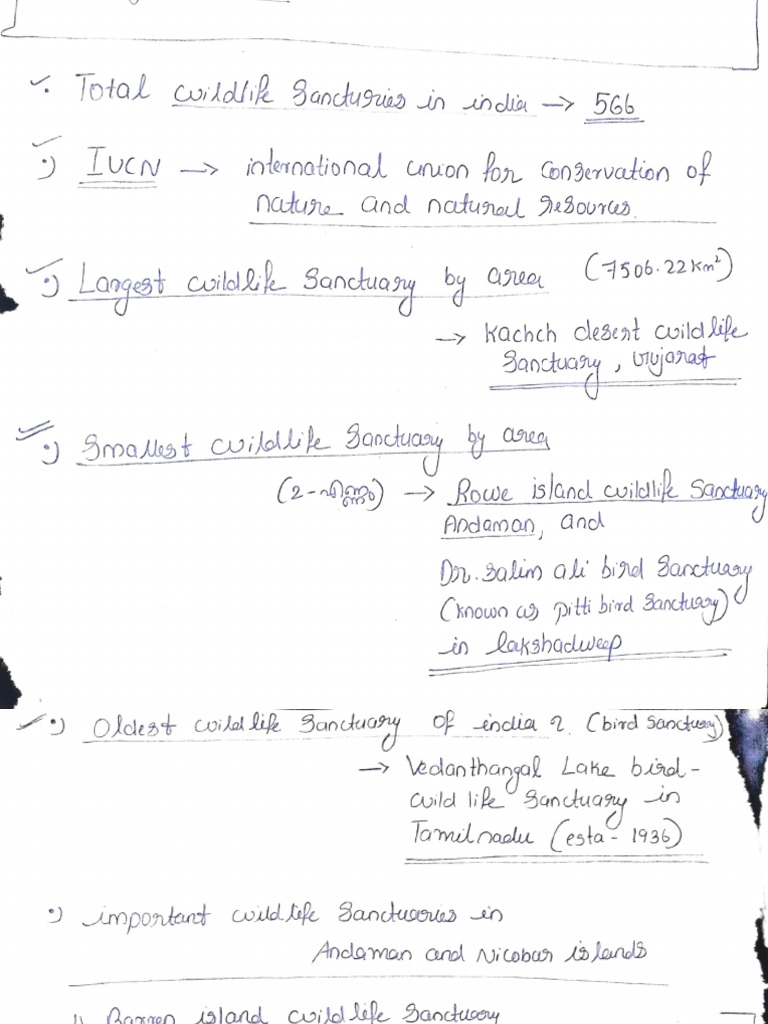 Total wildlife Sanctuaries in india → 566
IUCN → international union for conservation of
nature and natural resources.
Largest wildlife Sanctuary by area (7506.22 Km²)
→ Kachch desert wildlife
Sanctuary, Gujarat
Smallest wildlife Sanctuary by area
(2-എണ്ണം) → Rowe island wildlife Sanctuary
Andaman, and
Dr. Salim ali bird Sanctuary
(known as pitti bird Sanctuary)
in lakshadweep
Oldest wildlife Sanctuary of india ? (bird Sanctuary)
→ Vedanthangal Lake bird-
wild life Sanctuary in
Tamilnadu (esta - 1936)
important wildlife Sanctuaries in
Andaman and Nicobar islands
1) Barren island wildlife Sanctuary